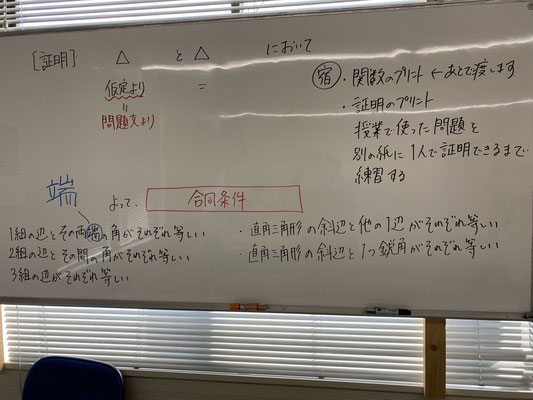 [証明] △ と △ において
仮定より =
॥
問題文より
宿 ・関数のプリント ←あとで渡します
・証明のプリント
授業で使った問題を
別の紙に1人で証明できるまで
練習する
端
よって、 合同条件
1組の辺とその両端の角がそれぞれ等しい
2組の辺とその間の角がそれぞれ等しい
3組の辺がそれぞれ等しい
・直角三角形の斜辺と他の1辺がそれぞれ等しい
・直角三角形の斜辺と1つ鋭角がそれぞれ等しい